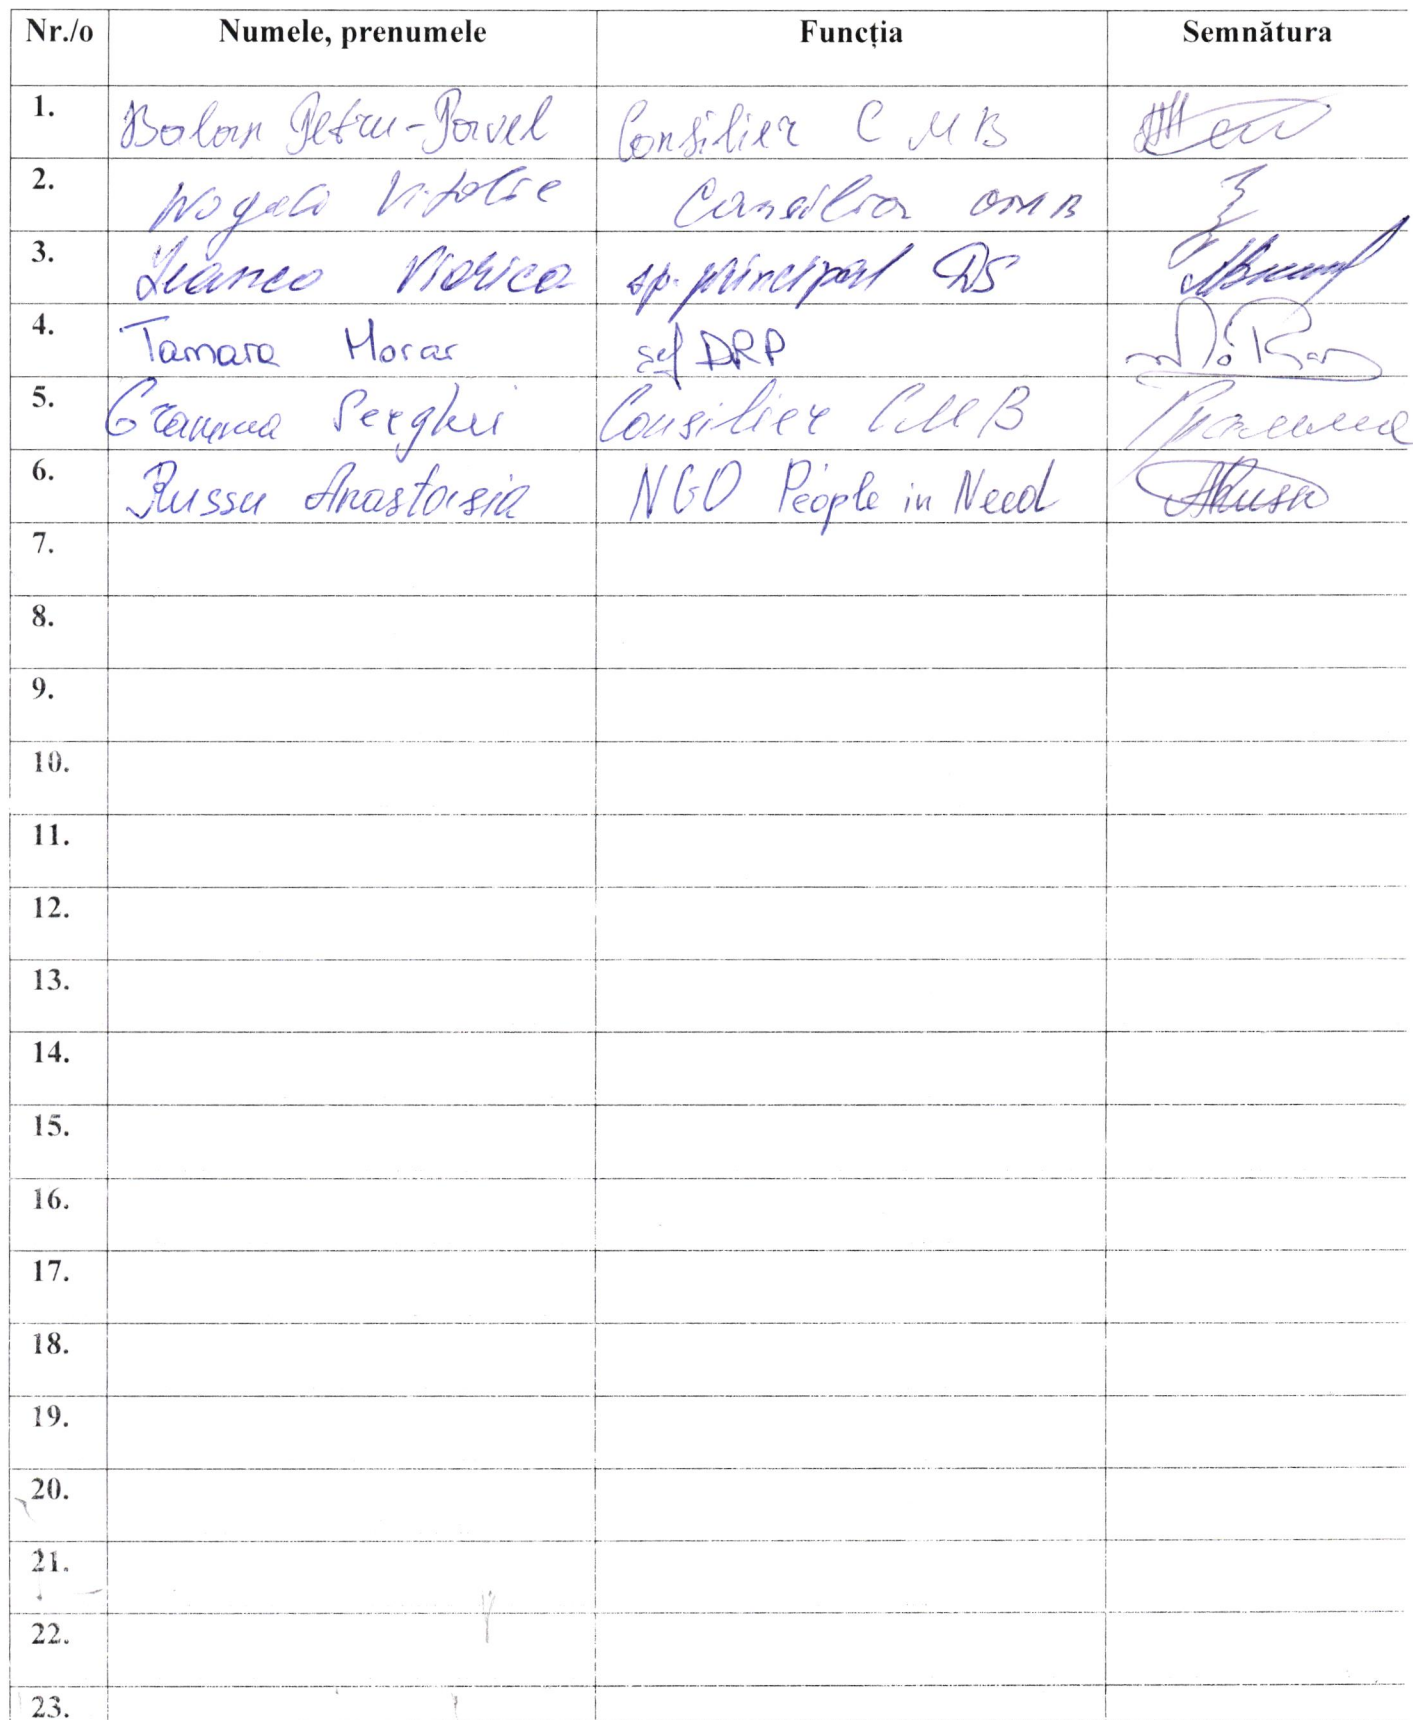 Nr./o Numele, prenumele Funcția Semnătura
1. Balan Petru-Pavel Consilier C M B
2. Vitalie Consilier CMB
3. Viorica sp. principal DS
4. Tamara Morar șef DRP
5. Gramma Serghei Consilier CMB Грамма
6. Russu Anastasia NGO People in Need ARussu
7.
8.
9.
10.
11.
12.
13.
14.
15.
16.
17.
18.
19.
20.
21.
22.
23.